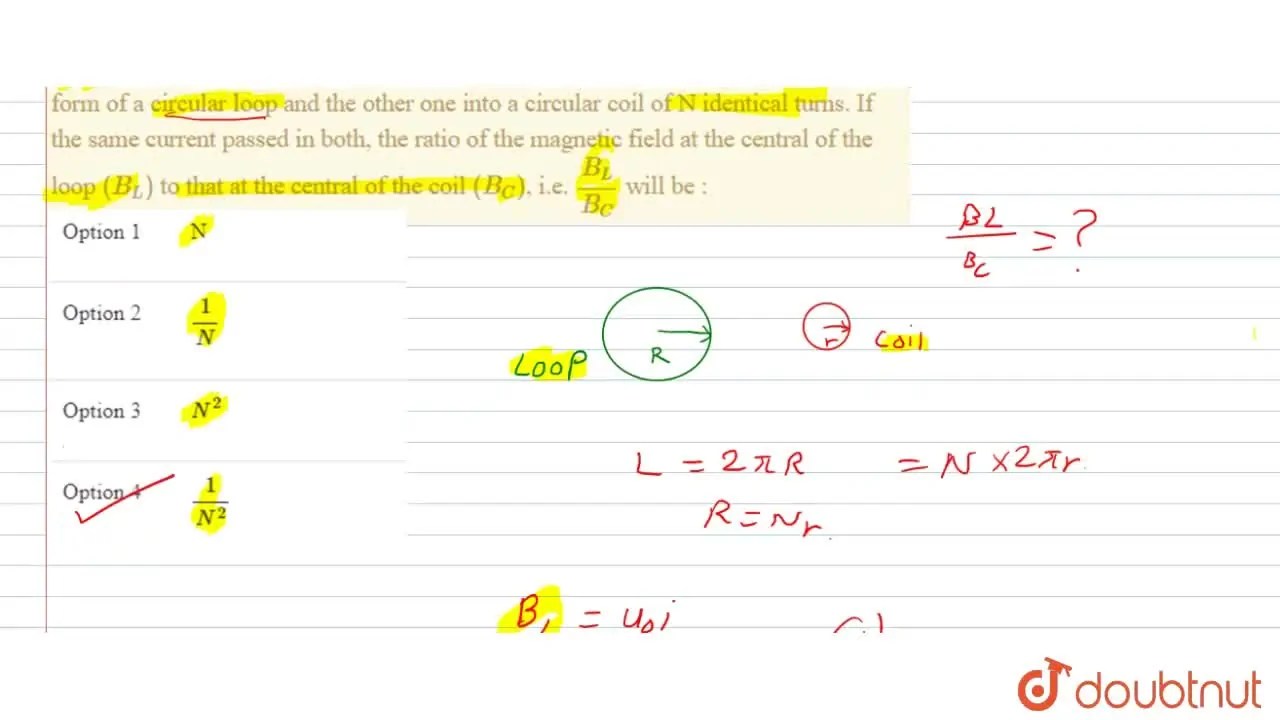 form of a circular loop and the other one into a circular coil of N identical turns. If
the same current passed in both, the ratio of the magnetic field at the central of the
loop (B_L) to that at the central of the coil (B_C), i.e. B_L/B_C will be :
Option 1 N
Option 2 1/N
Option 3 N²
Option 4 1/N²
BL/BC = ?
LOOP
R
r
coil
L = 2πR = N×2πr
R = Nr
B = u₀i
doubtnut